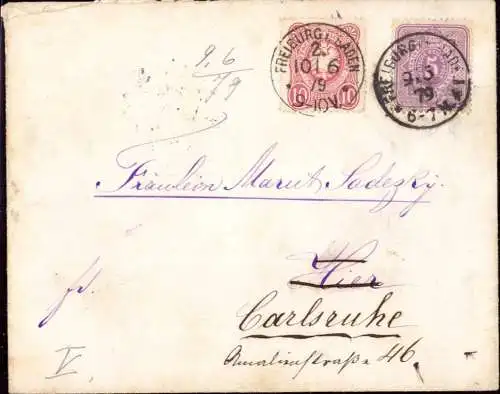 9.6
79
FREIBURG I. BADEN
2.
10 6
79
9-10V.
10 10
FREIBURG
5
9.6
79
6-7N.
Fräulein Marut Sadezky.
fr.
Hier
Carlsruhe
Amalienstraße 46
V.